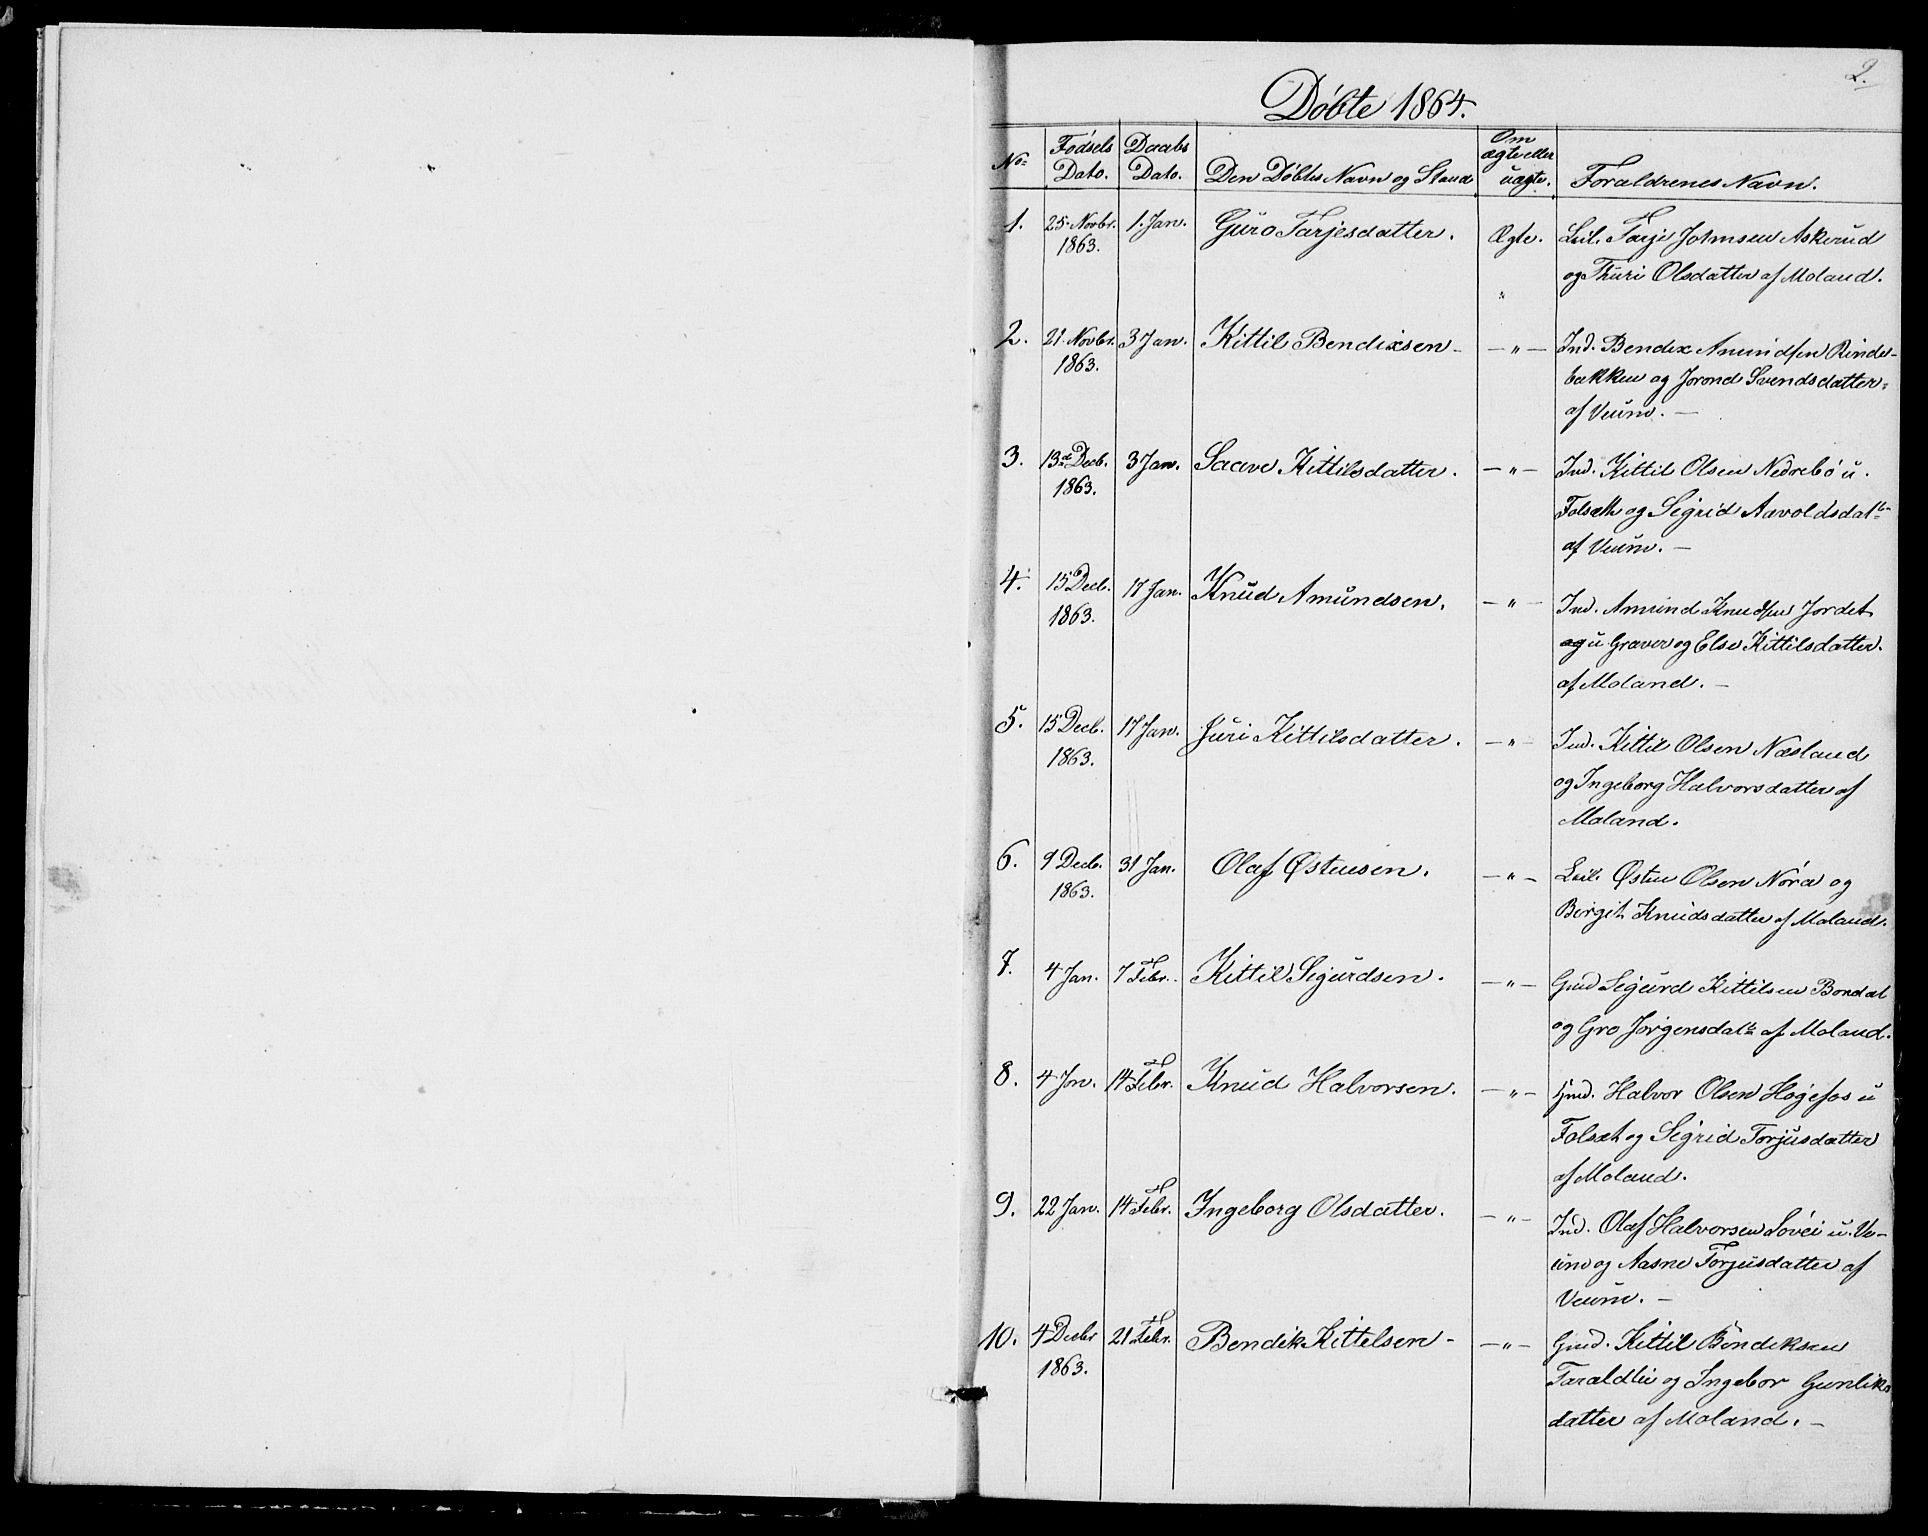 2.
Döbte 1864.
No. Födsels Dato. Daabs Dato. Den Döbtes Navn og Stand Om ægte eller uægte. Forældrenes Navn.
1. 25 Novbr. 1. Jan. Guro Tarjesdatter. Ægte. Leil. Tarje Johnsen Askerud
1863. og Thuri Olsdatter af Moland.
2. 21 Novbr. 3 Jan. Kittil Bendixsen - — " — Ind. Bendix Amundsen Rindes-
1863. bakken og Jorond Svendsdatter
af Veum. —
3. 13de Decb. 3 Jan. Saave Kittilsdatter. — " — Ind. Kittil Olsen Nedrebö u.
1863. Folsæth og Sigrid Aavoldsdatt
af Veum. —
4. 15 Decb. 17 Jan. Knud Amundsen. — " — Ind. Amund Knudsen Jordet
1863. og u Graver og Else Kittilsdatter
af Moland. —
5. 15 Decb. 17 Jan. Juri Kittilsdatter. — " — Ind. Kittil Olsen Næsland
1863. og Ingeborg Halvorsdatter af
Moland.
6. 9 Decb. 31 Jan. Olaf Østensen. — " — Leil. Østen Olsen Nora og
1863. Birgit Knudsdatter af Moland.
7. 4 Jan. 7 Febr. Kittil Sigurdsen. — " — Gmd Sigurd Kittilsen Bondal
og Gro Jörgensdatt af Moland.
8. 4 Jan. 14 Febr. Knud Halvorsen. — " — Gmd. Halvor Olsen Högefos u
Folsæt og Sigrid Torjusdatter
af Moland.
9. 22 Jan. 14 Febr. Ingeborg Olsdatter. — " — Ind. Olaf Halvorsen Lövei u. Ve-
um og Aasne Torjusdatter af
Veum. —
10. 4 Decbr 21 Febr. Bendik Kittelsen - — " — Gmd. Kittil Bendiksen
1863. Taraldlie og Ingebor Gunliks
datter af Moland. —